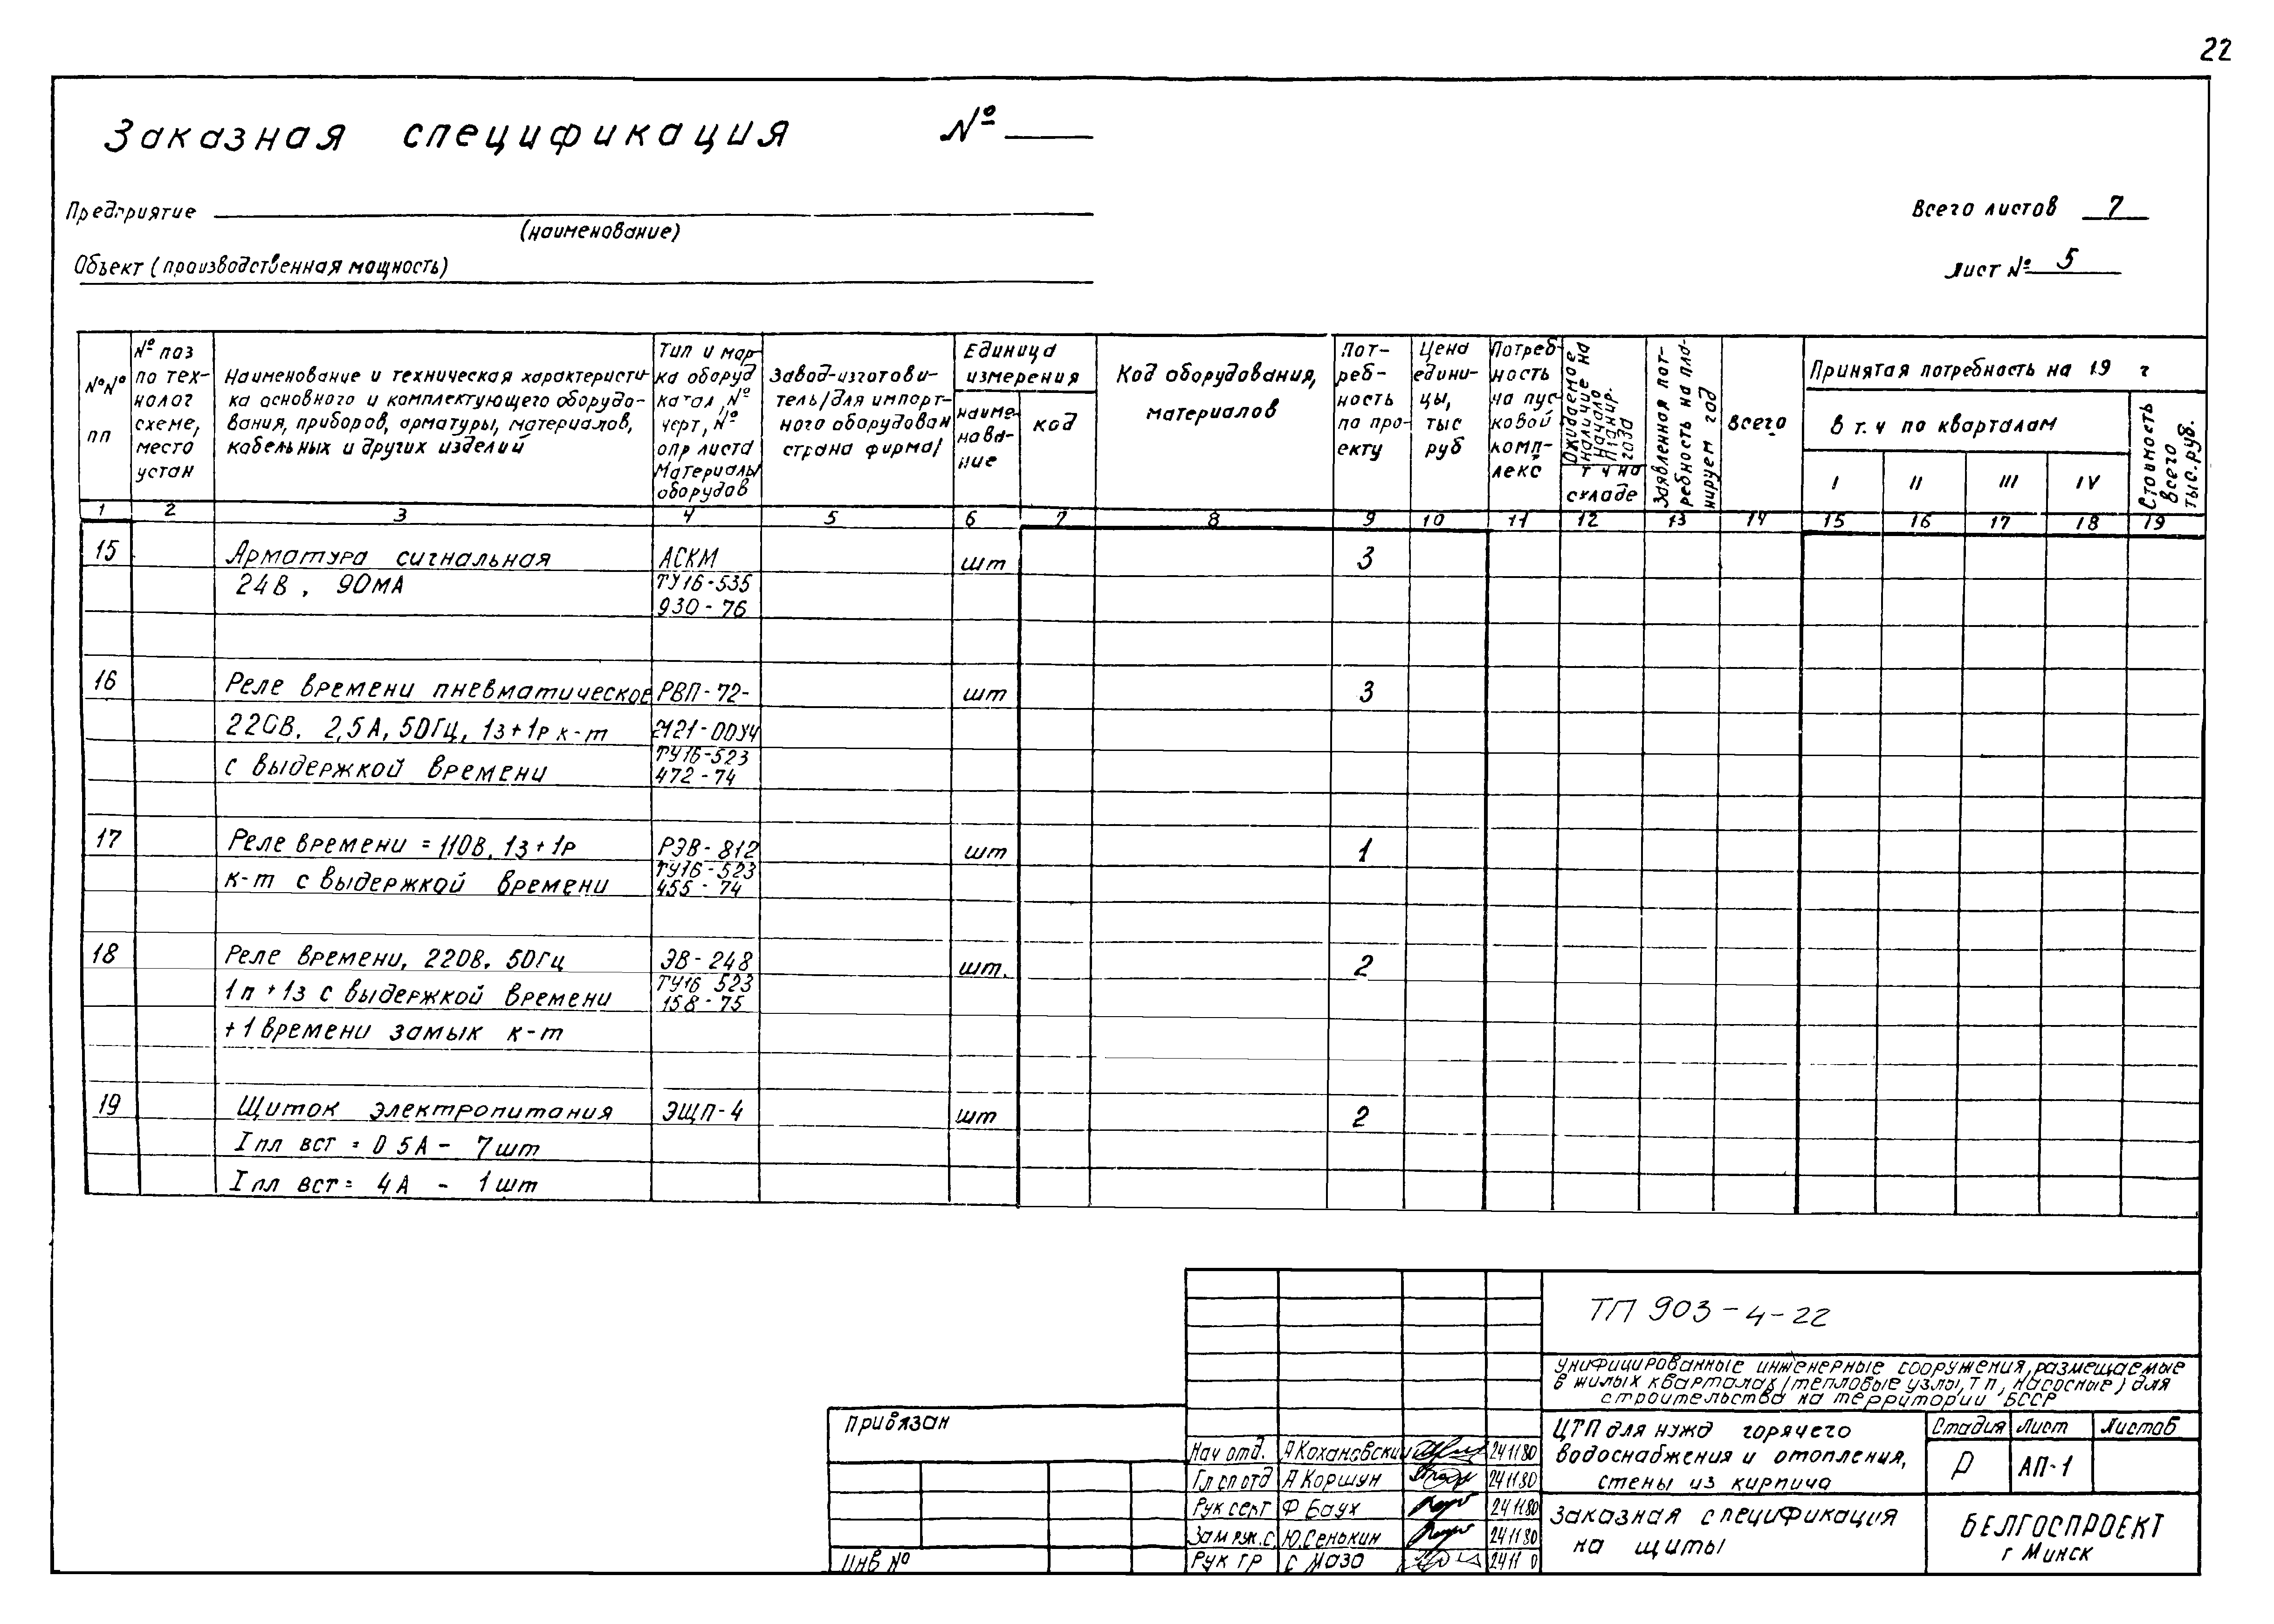 22
Заказная спецификация № ____
Предприятие
(наименование)
Всего листов 7
Объект (производственная мощность)
Лист № 5
№№ пп
№ поз по тех- нолог схеме, место устан
Наименование и техническая характеристи-
ка основного и комплектующего оборудо-
вания, приборов, арматуры, материалов,
кабельных и других изделий
Тип и мар-
ка оборуд
катал, №
черт, №
опр листа
Материалы
оборудов
Завод-изготови-
тель/для импорт-
ного оборудован
страна фирма/
Единица
измерения
наиме-
нова-
ние
код
Код оборудования,
материалов
Пот-
реб-
ность
по про-
екту
Цена
едини-
цы,
тыс
руб
Потреб-
ность
на пус
ковой
комп-
лекс
Ожидаемое
наличие на
начало
планир.
года
т ч на
складе
Заявленная пот-
ребность на пла-
нируем год
Всего
Принятая потребность на 19 г
в т. ч по кварталам
I II III IV
Стоимость
всего
тыс. руб.
1 2 3 4 5 6 7 8 9 10 11 12 13 14 15 16 17 18 19
15 Арматура сигнальная АСКМ шт 3
24В, 90МА ТУ16-535
930-76
16 Реле времени пневматическое РВП-72- шт 3
220В, 2,5А, 50Гц, 1з+1р к-т 2121-00У4
ТУ16-523
с выдержкой времени 472-74
17 Реле времени =110В, 1з+1р РЭВ-812 шт 1
ТУ16-523
к-т с выдержкой времени 455-74
18 Реле времени, 220В. 50Гц ЭВ-248 шт. 2
ТУ16 523
1п+1з с выдержкой времени 158-75
+1 времени замык к-т
19 Щиток электропитания ЭЩП-4 шт 2
I пл вст = 0 5А - 7шт
I пл вст= 4А - 1шт
ТП 903-4-22
унифицированные инженерные сооружения, размещаемые
в жилых кварталах (тепловые узлы, тп, насосные) для
строительства на территории БССР
Привязан
ЦТП для нужд горячего
водоснабжения и отопления,
стены из кирпича
Стадия Лист Листов
Р АП-1
Нач отд. А Кохановский 24 11 80
Гл сп отд А Коршун 24 11 80
Рук серт Ф Баух 24 11 80
Зам рук. с. Ю. Сенькин 24 11 80
Рук гр С Мазо 24 11 0
Заказная спецификация
на щиты
БЕЛГОСПРОЕКТ
г Минск
Инв №